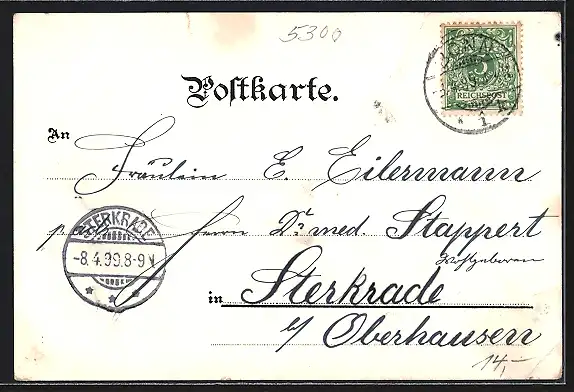 5300
BONN
5
REICHSPOST
Postkarte.
An
Fräulein E. Eilermann
Herrn Dr. med. Stappert
Wohlgeboren
STERKRADE
-8.4.99.8-9 V
in Sterkrade
b/ Oberhausen
14,-